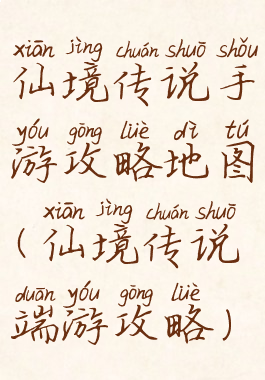 xiān jìng chuán shuō shǒu
仙境传说手
yóu gōng lüè dì tú
游攻略地图
xiān jìng chuán shuō
(仙境传说
duān yóu gōng lüè
端游攻略)